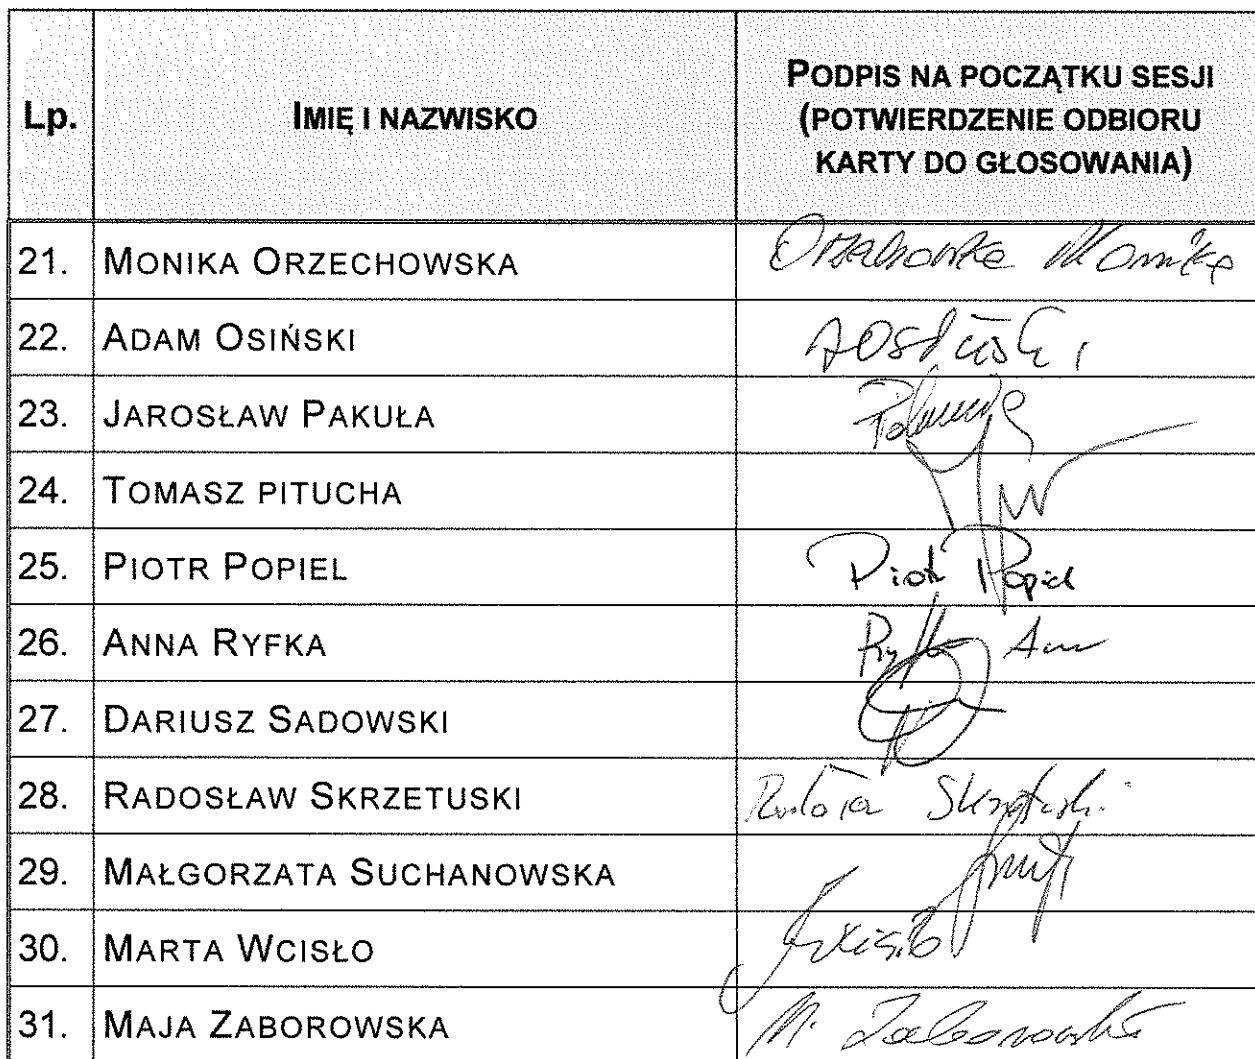 Lp. IMIĘ I NAZWISKO PODPIS NA POCZĄTKU SESJI
(POTWIERDZENIE ODBIORU
KARTY DO GŁOSOWANIA)
21. MONIKA ORZECHOWSKA Orzechowska Monika
22. ADAM OSIŃSKI AOsiński
23. JAROSŁAW PAKUŁA
24. TOMASZ PITUCHA
25. PIOTR POPIEL Piotr Popiel
26. ANNA RYFKA Ryfka
27. DARIUSZ SADOWSKI
28. RADOSŁAW SKRZETUSKI Skrzetuski
29. MAŁGORZATA SUCHANOWSKA
30. MARTA WCISŁO
31. MAJA ZABOROWSKA M. Zaborowska